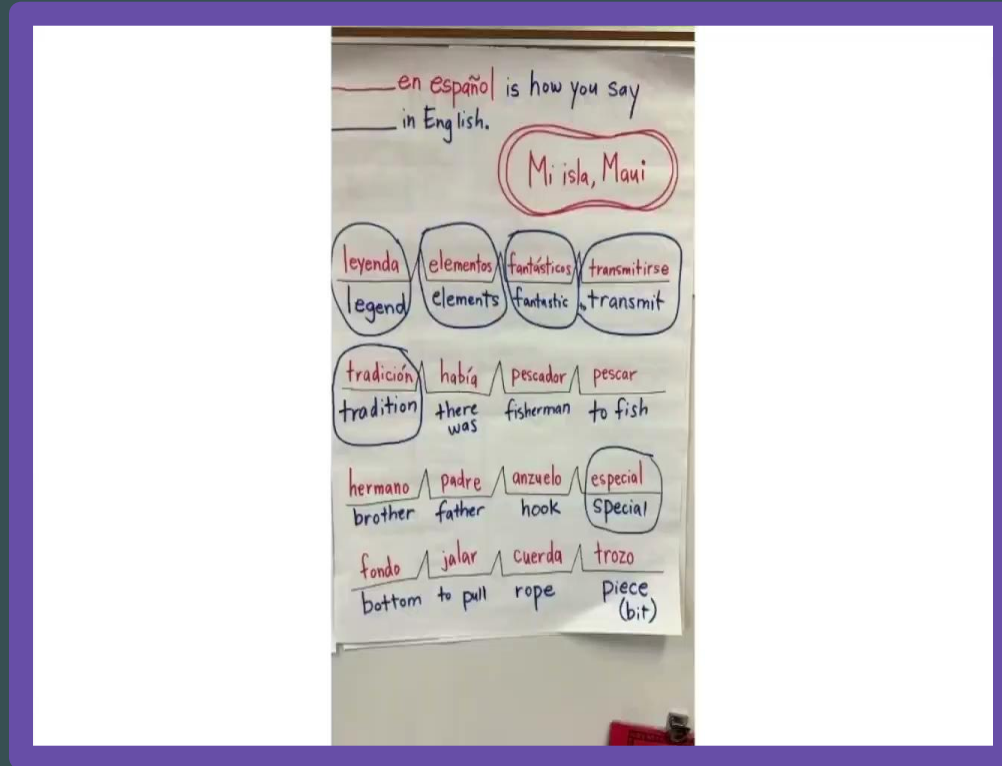 ___ en español is how you say
___ in English.
Mi isla, Maui
leyenda elementos fantásticos transmitirse
legend elements fantastic transmit
tradición había pescador pescar
tradition there was fisherman to fish
hermano padre anzuelo especial
brother father hook special
fondo jalar cuerda trozo
bottom to pull rope piece (bit)